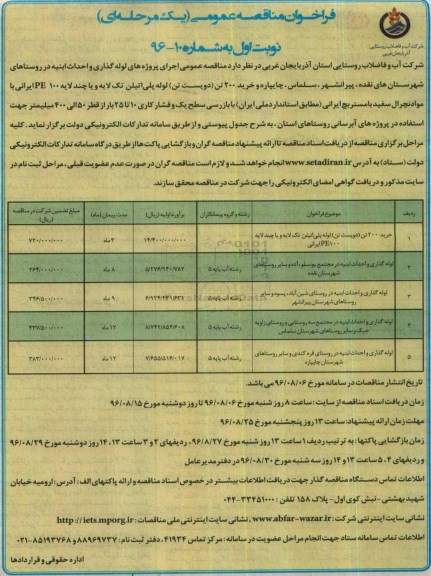 فراخوان مناقصه عمومی (یک مرحله‌ای)
نوبت اول به شماره ۱۰-۹۶
شرکت آب و فاضلاب روستایی
آذربایجان غربی
شرکت آب و فاضلاب روستایی استان آذربایجان غربی در نظر دارد مناقصه عمومی اجرای پروژه های لوله گذاری و احداث ابنیه در روستاهای
شهرستان های نقده ، پیرانشهر ، سلماس ، چایپاره و خرید ۲۰۰ تن (دویست تن) لوله پلی اتیلن تک لایه و یا چند لایه PE ۱۰۰ ایرانی با
مواد نچرال سفید با مستربچ ایرانی (مطابق استاندارد ملی ایران) با بازرسی سطح یک و فشار کاری ۱۰ تا ۲۵ بار از قطر ۵۰ الی ۴۰۰ میلیمتر جهت
استفاده در پروژه های آبرسانی روستاهای استان ، به شرح جدول پیوستی و از طریق سامانه تدارکات الکترونیکی دولت برگزار نماید . کلیه
مراحل برگزاری مناقصه از دریافت اسناد مناقصه تا ارائه پیشنهاد مناقصه گران و بازگشایی پاکت ها از طریق درگاه سامانه تدارکات الکترونیکی
دولت (ستاد) به آدرس www.setadiran.ir انجام خواهد شد و لازم است مناقصه گران در صورت عدم عضویت قبلی ، مراحل ثبت نام در
سایت مذکور و دریافت گواهی امضای الکترونیکی را جهت شرکت در مناقصه محقق سازند.
ردیف | موضوع فراخوان | رشته و گروه پیمانکاران | برآورد اولیه (ریال) | مدت پیمان (ماه) | مبلغ تضمین شرکت در مناقصه (ریال)
۱ | خرید ۲۰۰ تن (دویست تن) لوله پلی اتیلن تک لایه و یا چند لایه PE۱۰۰ ایرانی | | ۱۴/۴۰۰/۰۰۰/۰۰۰ | ۳ ماه | ۷۲۰/۰۰۰/۰۰۰
۲ | لوله گذاری و احداث ابنیه در مجتمع و سایر روستاهای شهرستان نقده | رشته آب پایه ۵ | ۵/۲۷۶/۹۴۰/۷۸۲ | ۸ ماه | ۲۶۴/۰۰۰/۰۰۰
۳ | لوله گذاری و احداث ابنیه در روستای شین آباد، پسوه و سایر روستاهای شهرستان پیرانشهر | رشته آب پایه ۵ | | ۹ ماه | ۳۴۶/۰۰۰/۰۰۰
۴ | لوله گذاری و احداث ابنیه در مجتمع سه روستایی و روستای و سایر روستاهای شهرستان سلماس | رشته آب پایه ۵ | | ۱۲ ماه |
۵ | لوله گذاری و احداث ابنیه در روستای قره کندی و سایر روستاهای شهرستان چایپاره | رشته آب پایه ۵ | ۷/۶۵۵/۵۱۶/۰۱۷ | ۱۲ ماه | ۳۸۳/۰۰۰/۰۰۰
تاریخ انتشار مناقصات در سامانه مورخ ۹۶/۰۸/۰۶ می باشد.
زمان دریافت اسناد مناقصه از سایت : ساعت ۸ روز شنبه مورخ ۹۶/۰۸/۰۶ تا روز دوشنبه مورخ ۹۶/۰۸/۱۵
مهلت زمان ارائه پیشنهاد: ساعت ۱۳ روز پنجشنبه مورخ ۹۶/۰۸/۲۵
زمان بازگشایی پاکتها : به ترتیب ردیف ۱ ساعت ۱۳ روز شنبه مورخ ۹۶/۸/۲۷ ، ردیفهای ۲ و ۳ ساعت ۱۳ ، ۱۴ روز دوشنبه مورخ ۹۶/۰۸/۲۹
و ردیفهای ۴ ، ۵ ساعت ۱۳ و ۱۴ روز سه شنبه مورخ ۹۶/۰۸/۳۰ در دفتر مدیر عامل
اطلاعات تماس دستگاه مناقصه گذار جهت دریافت اطلاعات بیشتر در خصوص اسناد مناقصه و ارائه پاکتهای الف : آدرس : ارومیه خیابان
شهید بهشتی - نبش کوی اول - پلاک ۱۵۸ تلفن : ۳۳۴۵۱۰۰۰-۰۴۴
نشانی سایت اینترنتی شرکت : www.abfar-wazar.ir ، نشانی سایت اینترنتی ملی مناقصات : http://iets.mporg.ir
اطلاعات تماس سامانه ستاد جهت انجام مراحل عضویت در سامانه : مرکز تماس ۴۱۹۳۴ ، دفتر ثبت نام : ۸۸۹۶۹۷۳۷ و ۸۵۱۹۳۷۶۸-۰۲۱
اداره حقوقی و قراردادها